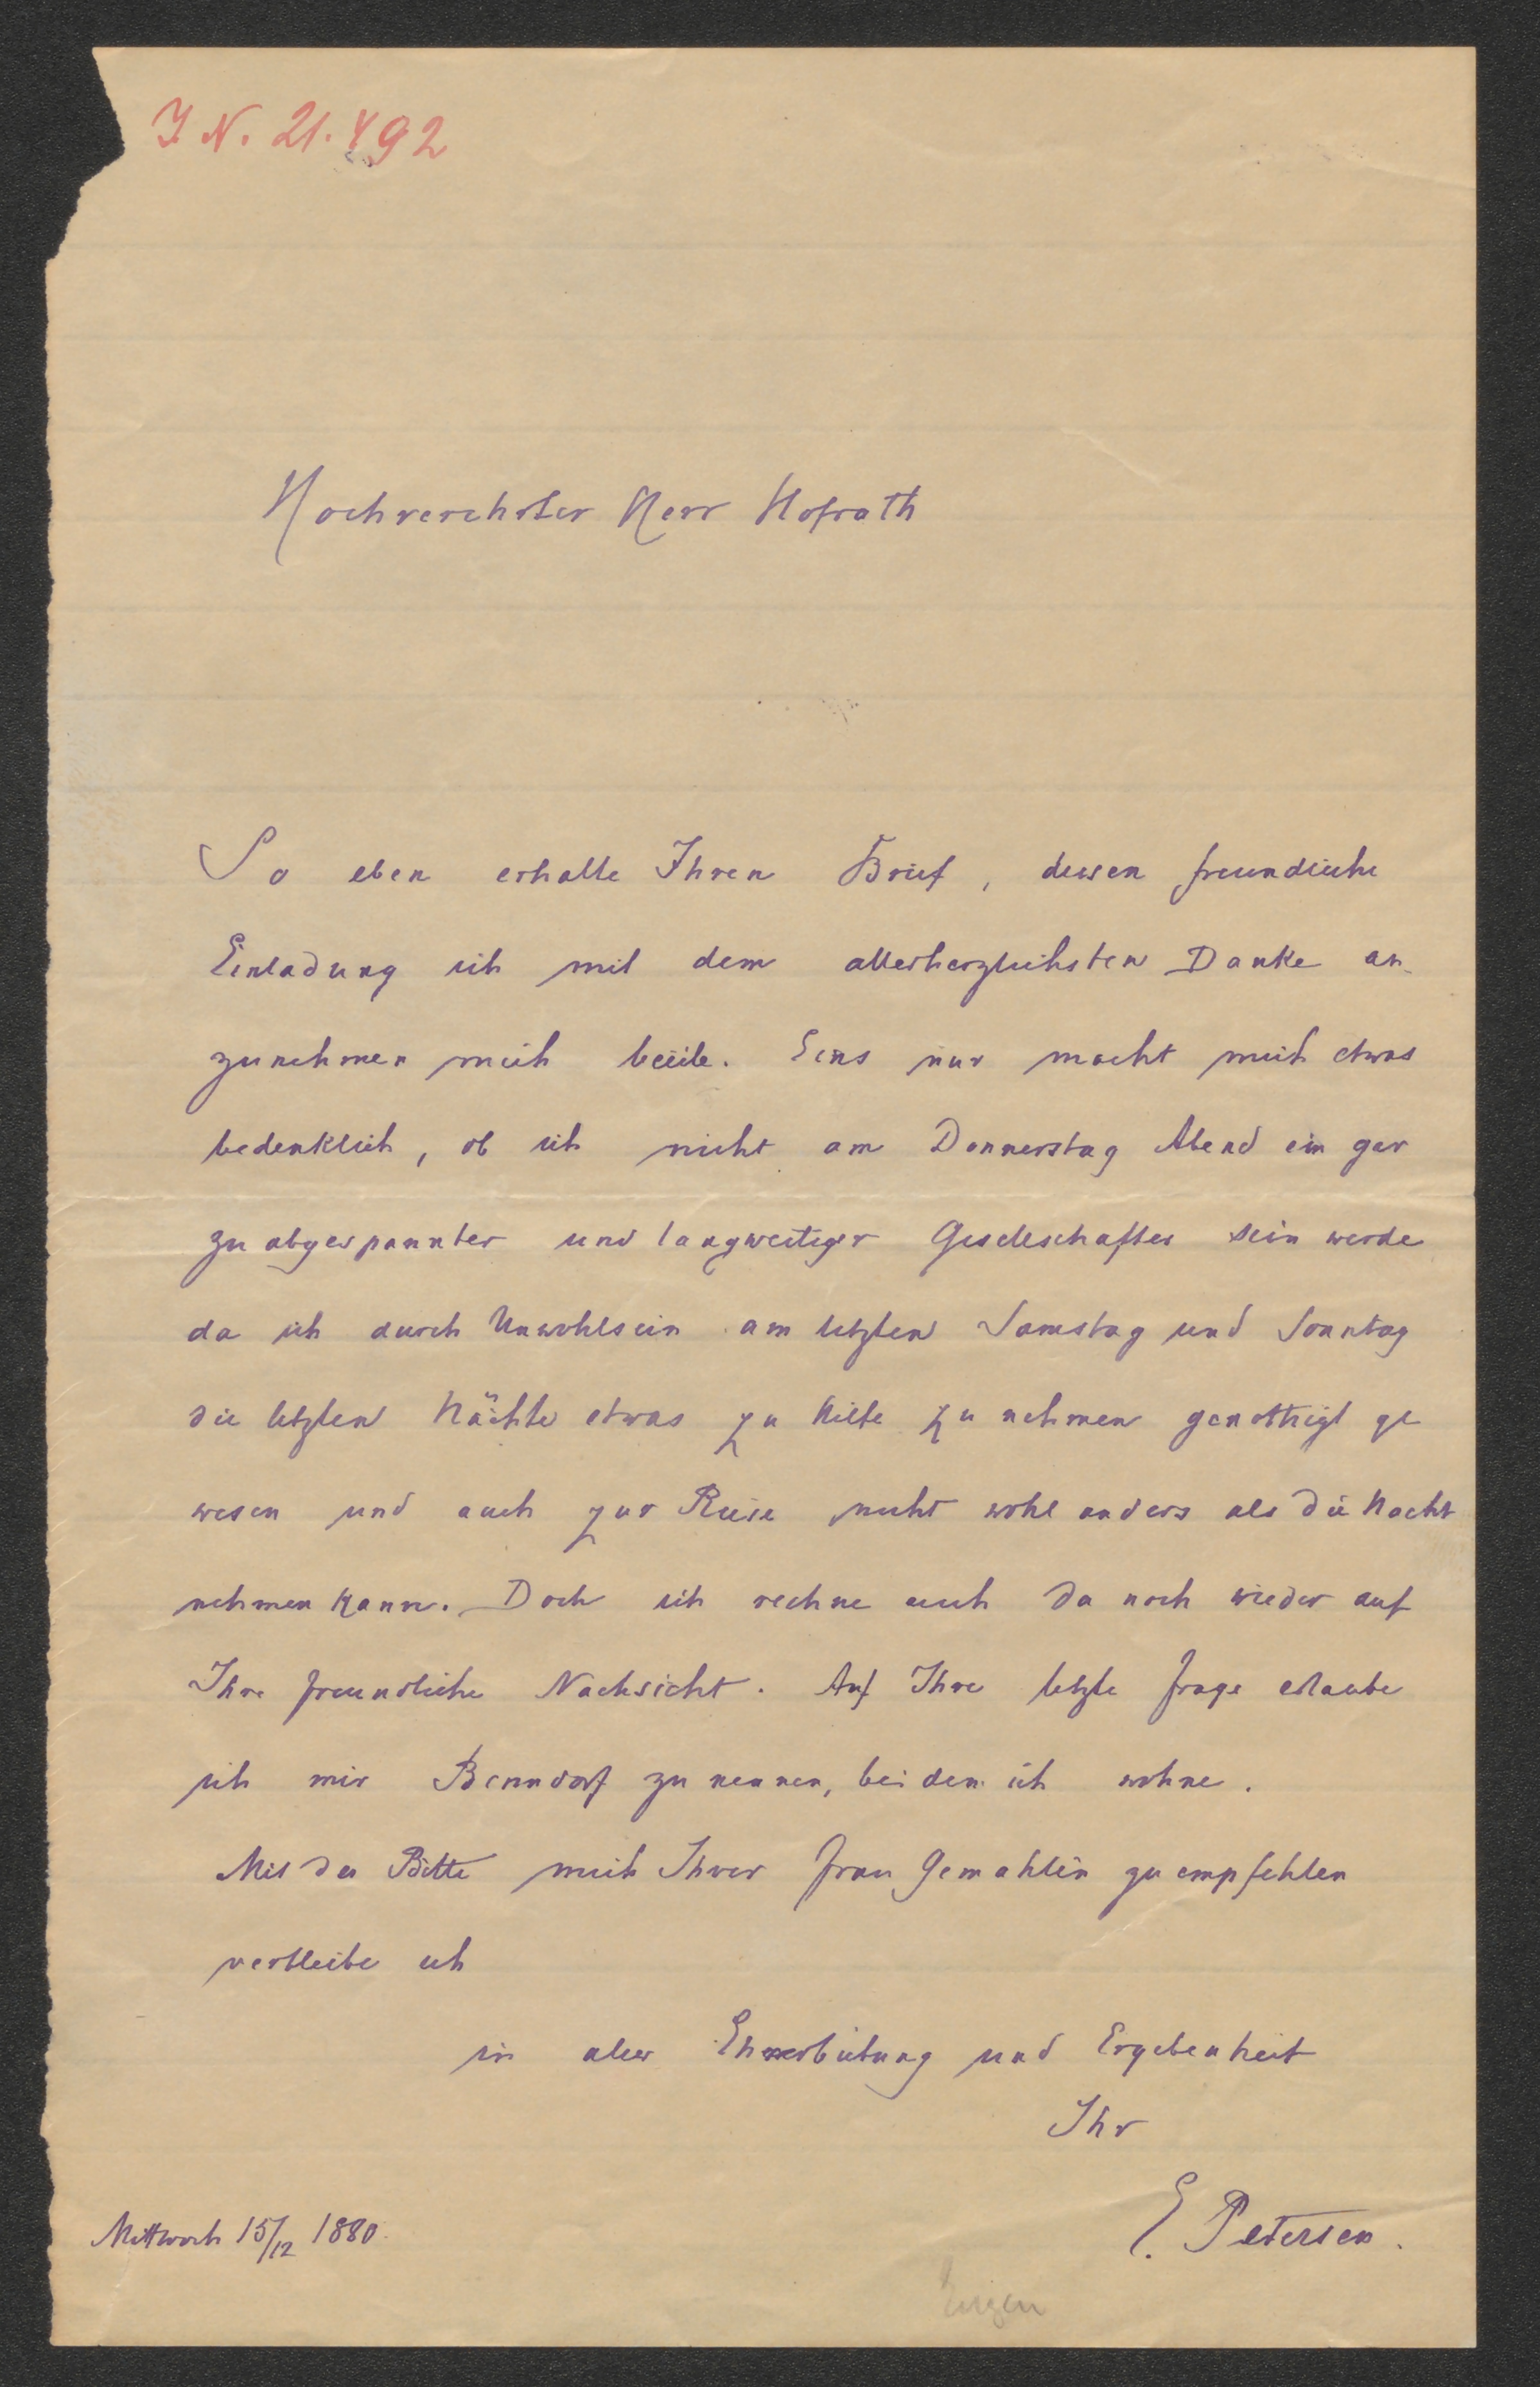 I N. 21.492
Hochverehrter Herr Hofrath
So eben erhalte Ihren Brief, dessen freundliche
Einladung ich mit dem allerherzlichsten Danke an
zunehmen mich beeile. Eins nur macht mich etwas
bedenklich, ob ich nicht am Donnerstag Abend ein gar
zu abgespannter und langweiliger Gesellschafter sein werde
da ich durch Unwohlsein am letzten Samstag und Sonntag
die letzten Nächte etwas zu Hilfe zu nehmen genöthigt ge
wesen und auch zur Reise nicht wohl anders als die Nacht
nehmen kann. Doch ich rechne auch da noch wieder auf
Ihre freundliche Nachsicht. Auf Ihre letzte Frage erlaube
ich mir Benndorf zu nennen, bei dem ich wohne.
Mit der Bitte mich Ihrer Frau Gemahlin zu empfehlen
verbleibe ich
in aller Ehrerbietung und Ergebenheit
Ihr
E. Petersen.
Mittwoch 15/12 1880.
Eugen